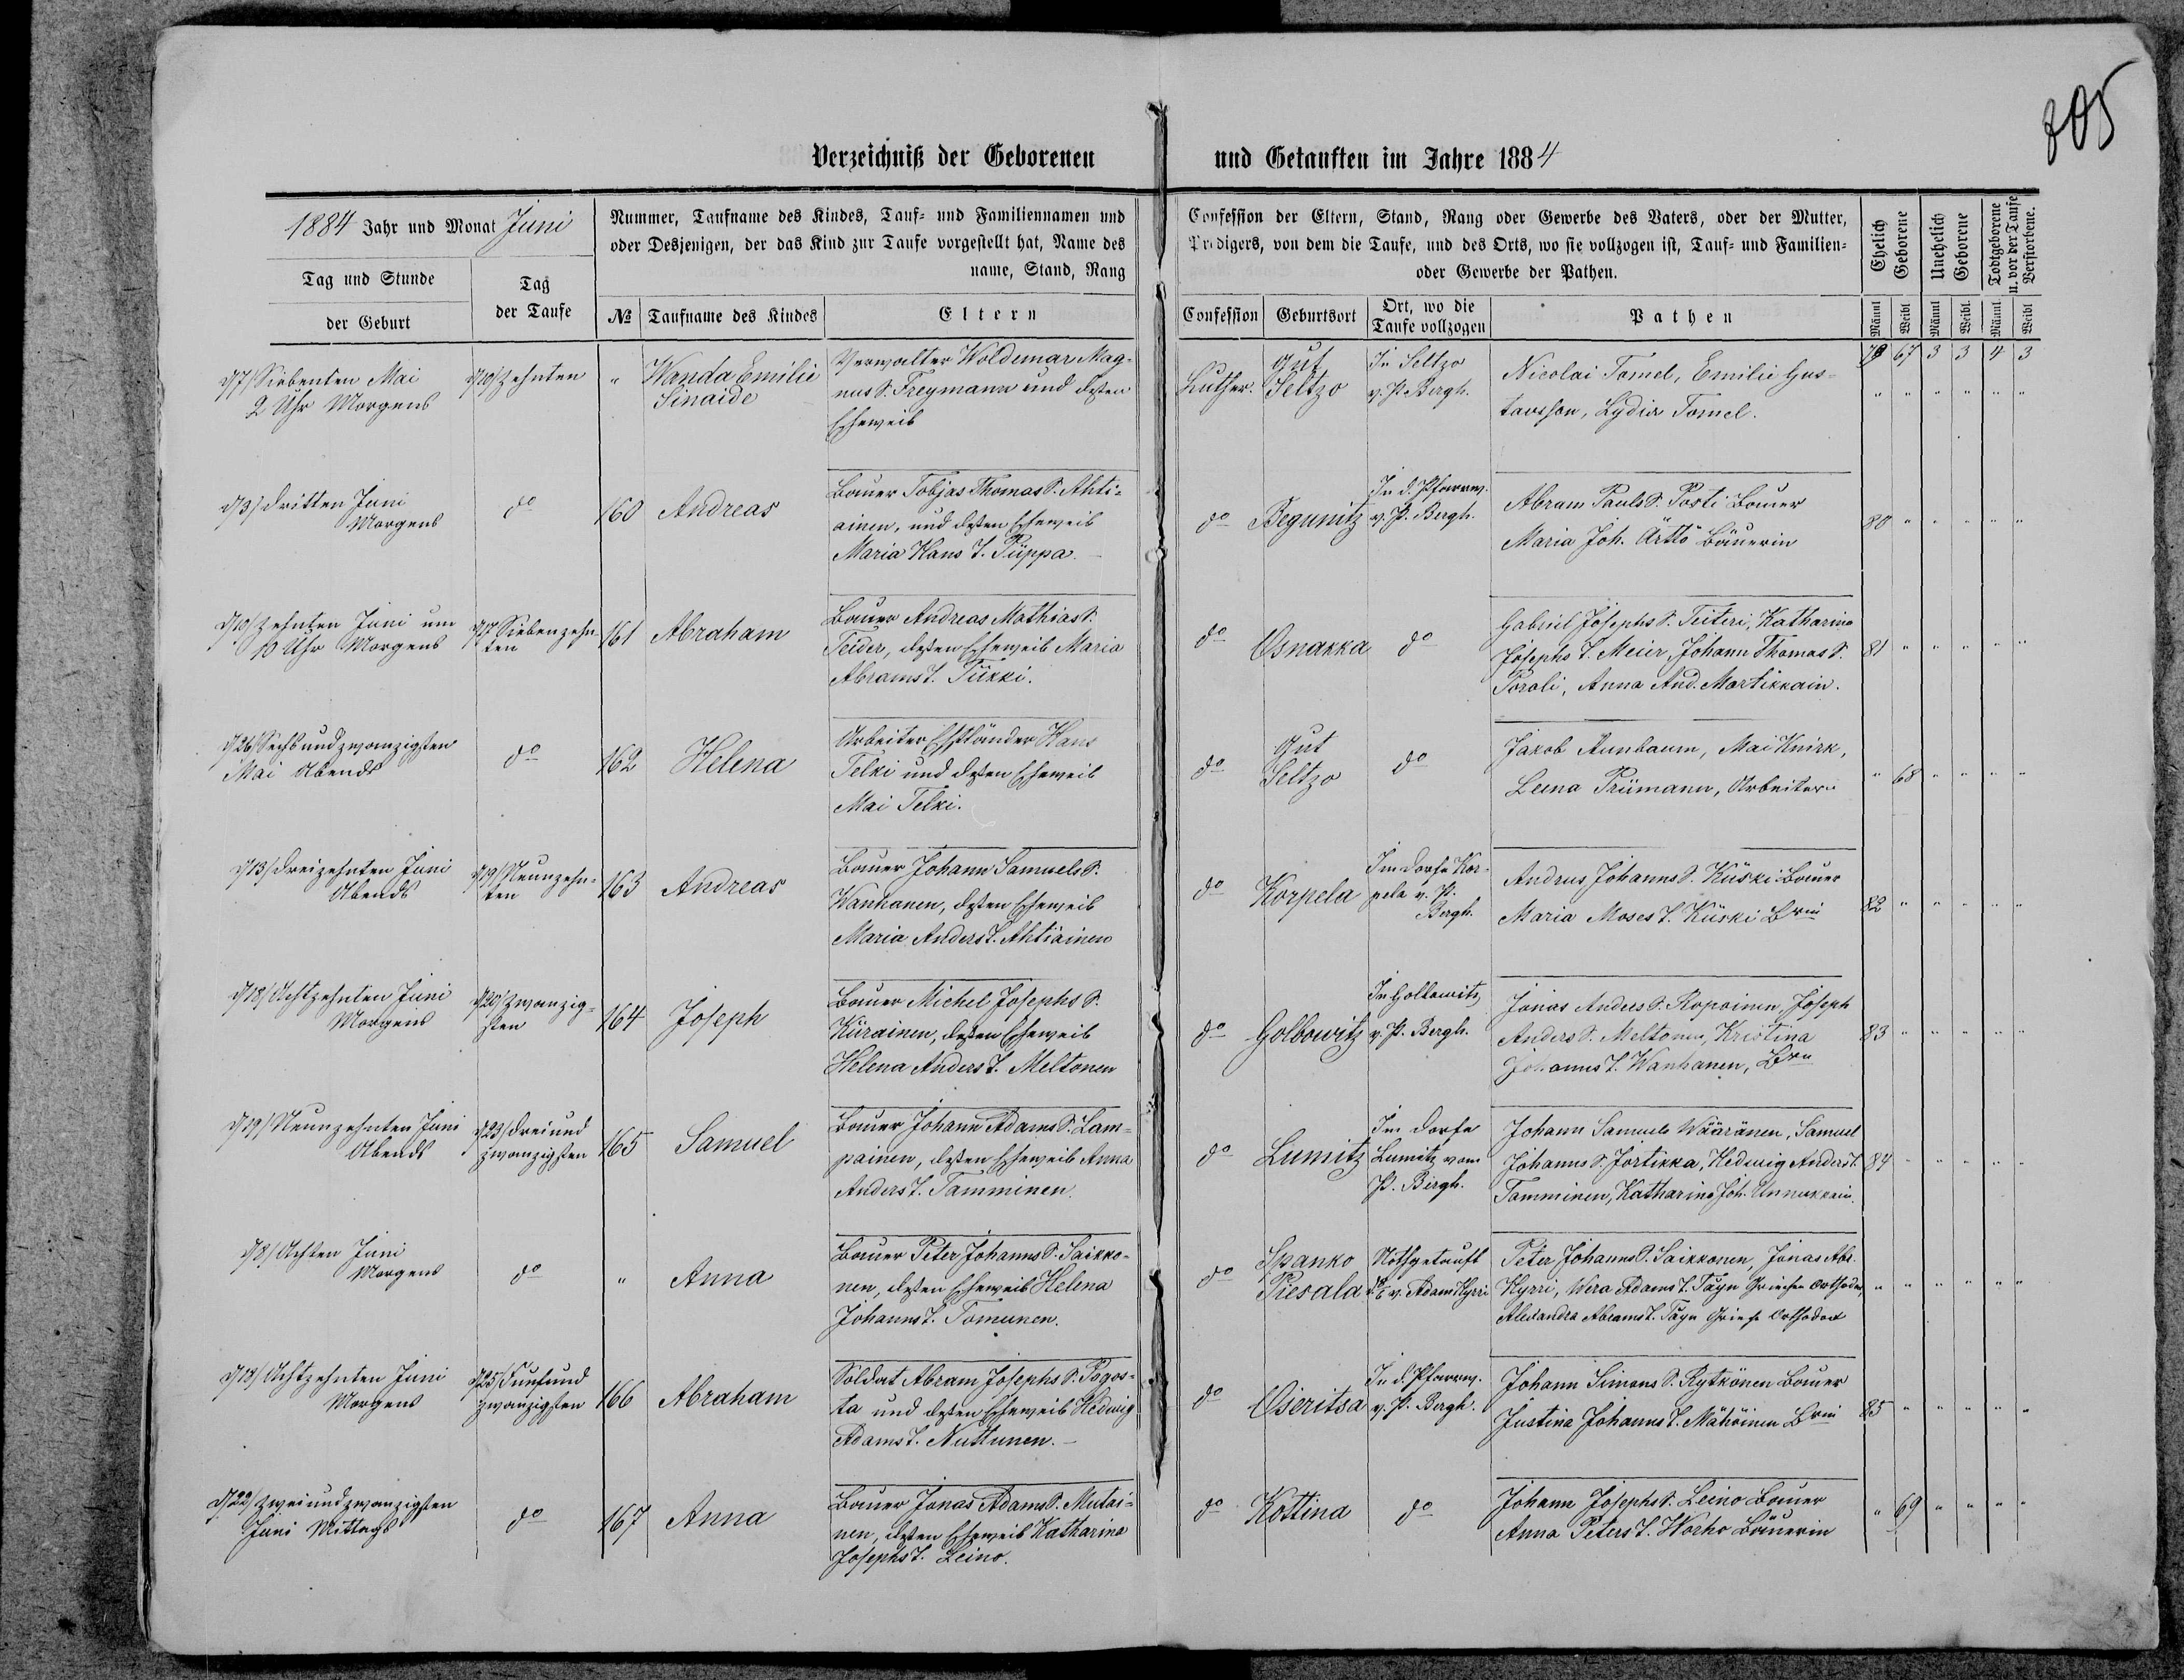 805
Verzeichniß der Geborenen und Getauften im Jahre 1884
1884 Jahr und Monat Juni
Tag und Stunde
der Geburt
Tag
der Taufe
Nummer, Taufname des Kindes, Tauf- und Familiennamen und
oder Desjenigen, der das Kind zur Taufe vorgestellt hat, Name des
name, Stand, Rang
№ Taufname des Kindes
Eltern
Confession der Eltern, Stand, Rang oder Gewerbe des Vaters, oder der Mutter,
Predigers, von dem die Taufe, und des Orts, wo sie vollzogen ist, Tauf- und Familien-
oder Gewerbe der Pathen.
Confession
Geburtsort
Ort, wo die
Taufe vollzogen
Pathen
Ehelich
Geborene
Unehelich
Geborene
Todtgeborene
u. vor der Taufe
Verstorbene.
Männl Weibl Männl Weibl. Männl Weibl
79 67 3 3 4 3
d/7/ Siebenten Mai
2 Uhr Morgens
d/10/ Zehnten
"
Wanda Emilie
Sinaide
Verwalter Woldemar Mag-
nus S. Freymann und deßen
Eheweib
Luther.
Gut
Seltzo
In Seltzo
v. P. Bergh.
Nicolai Tomel, Emilie Gus-
tavsson, Lydia Tomel.
" " " " " "
d/3/ Dritten Juni
Morgens
do
160 Andreas
Bauer Tobjas Thomas S. Ahti-
ainen, und deßen Eheweib
Maria Hans T. Püppa.
do Begunitz
In d. Pfarrw.
v. P. Bergh.
Abram Pauls S. Posti Bauer
Maria Joh. Ärttö Bäuerin
80 " " " " "
d/10/ Zehnten Juni um
10 Uhr Morgens
d/17 Siebenzehn-
ten
161 Abraham
Bauer Andreas Mathias S.
Teider, deßen Eheweib Maria
Abrams T. Tükki.
do Osnakka do
Gabriel Josephs S. Teiteri, Katharina
Josephs T. Meier, Johann Thomas S.
Porali, Anna And. Martikkain.
81 " " " " "
d/26/ Sechsundzwanzigsten
Mai Abends
do
162 Helena
Arbeiter Ehstländer Hans
Telki und deßen Eheweib
Mai Telki.
do
Gut
Seltzo
do
Jakob Aunbaum, Mai Knirk,
Leena Priimann, Arbeiter
" 68 " " " "
d/13/ Dreizehnten Juni
Abends
d/19/ Neunzehn-
ten
163 Andreas
Bauer Johann Samuels S.
Wanhanen, deßen Eheweib
Maria Anders T. Ahtiäinen
do Korpela
Im Dorfe Kor-
pela v. P.
Bergh.
Andrus Johanns S. Kiiski Bauer
Maria Moses T. Kiiski Brin
82 " " " " "
d/18/ Achtzehnten Juni
Morgens
d/20/ Zwanzig-
sten
164 Joseph
Bauer Michel Josephs S.
Kiirainen, deßen Eheweib
Helena Anders T. Meltonen
do Golbowitz
In Gollowitz
v. P. Bergh.
Jonas Anders S. Ropoinen, Joseph
Anders S. Meltonen, Kristina
Johanns T. Wanhanen, Brn
83 " " " " "
d/19/ Neunzehnten Juni
Abends
d/23/ Dreiund
zwanzigsten
165 Samuel
Bauer Johann Adams S. Lam-
painen, deßen Eheweib Anna
Anders T. Tamminen.
do Lumitz
Im Dorfe
Lumitz vom
P. Bergh.
Johann Samuels Wääränen, Samuel
Johanns S. Jortikka, Hedwig Anders T.
Tamminen, Katharina Joh. Unnukkain.
84 " " " " "
d/8/ Achten Juni
Morgens
do
" Anna
Bauer Peter Johanns S. Saikko-
nen, deßen Eheweib Helena
Johanns T. Tomunen.
do
Spanko
Piesala
Nothgetauft
v. Adam Hyrri
Peter Johanns S. Saikkonen, Jonas Abr.
Hyrri, Wera Adams T. Täyn Griechen Orthodox,
Alexandra Abrams T. Täyn Griech Orthodox
" " " " " "
d/18/ Achtzehnten Juni
Morgens
d/25/ Fünfund
zwanzigsten
166 Abraham
Soldat Abram Josephs S. Pogos-
ta und deßen Eheweib Hedwig
Adams T. Nuttunen.
do Oseritsa
In d. Pfarrw.
v. P. Bergh.
Johann Simons S. Rytkönen Bauer
Justina Johanns T. Mähöinen Brin
85 " " " " "
d/22/ Zweiundzwanzigsten
Juni Mittags
do
167 Anna
Bauer Jonas Adams S. Mutai-
nen, deßen Eheweib Katharina
Josephs T. Leino.
do Kottina do
Johann Josephs S. Leino Bauer
Anna Peters T. Worho Bäuerin
" 69 " " " "